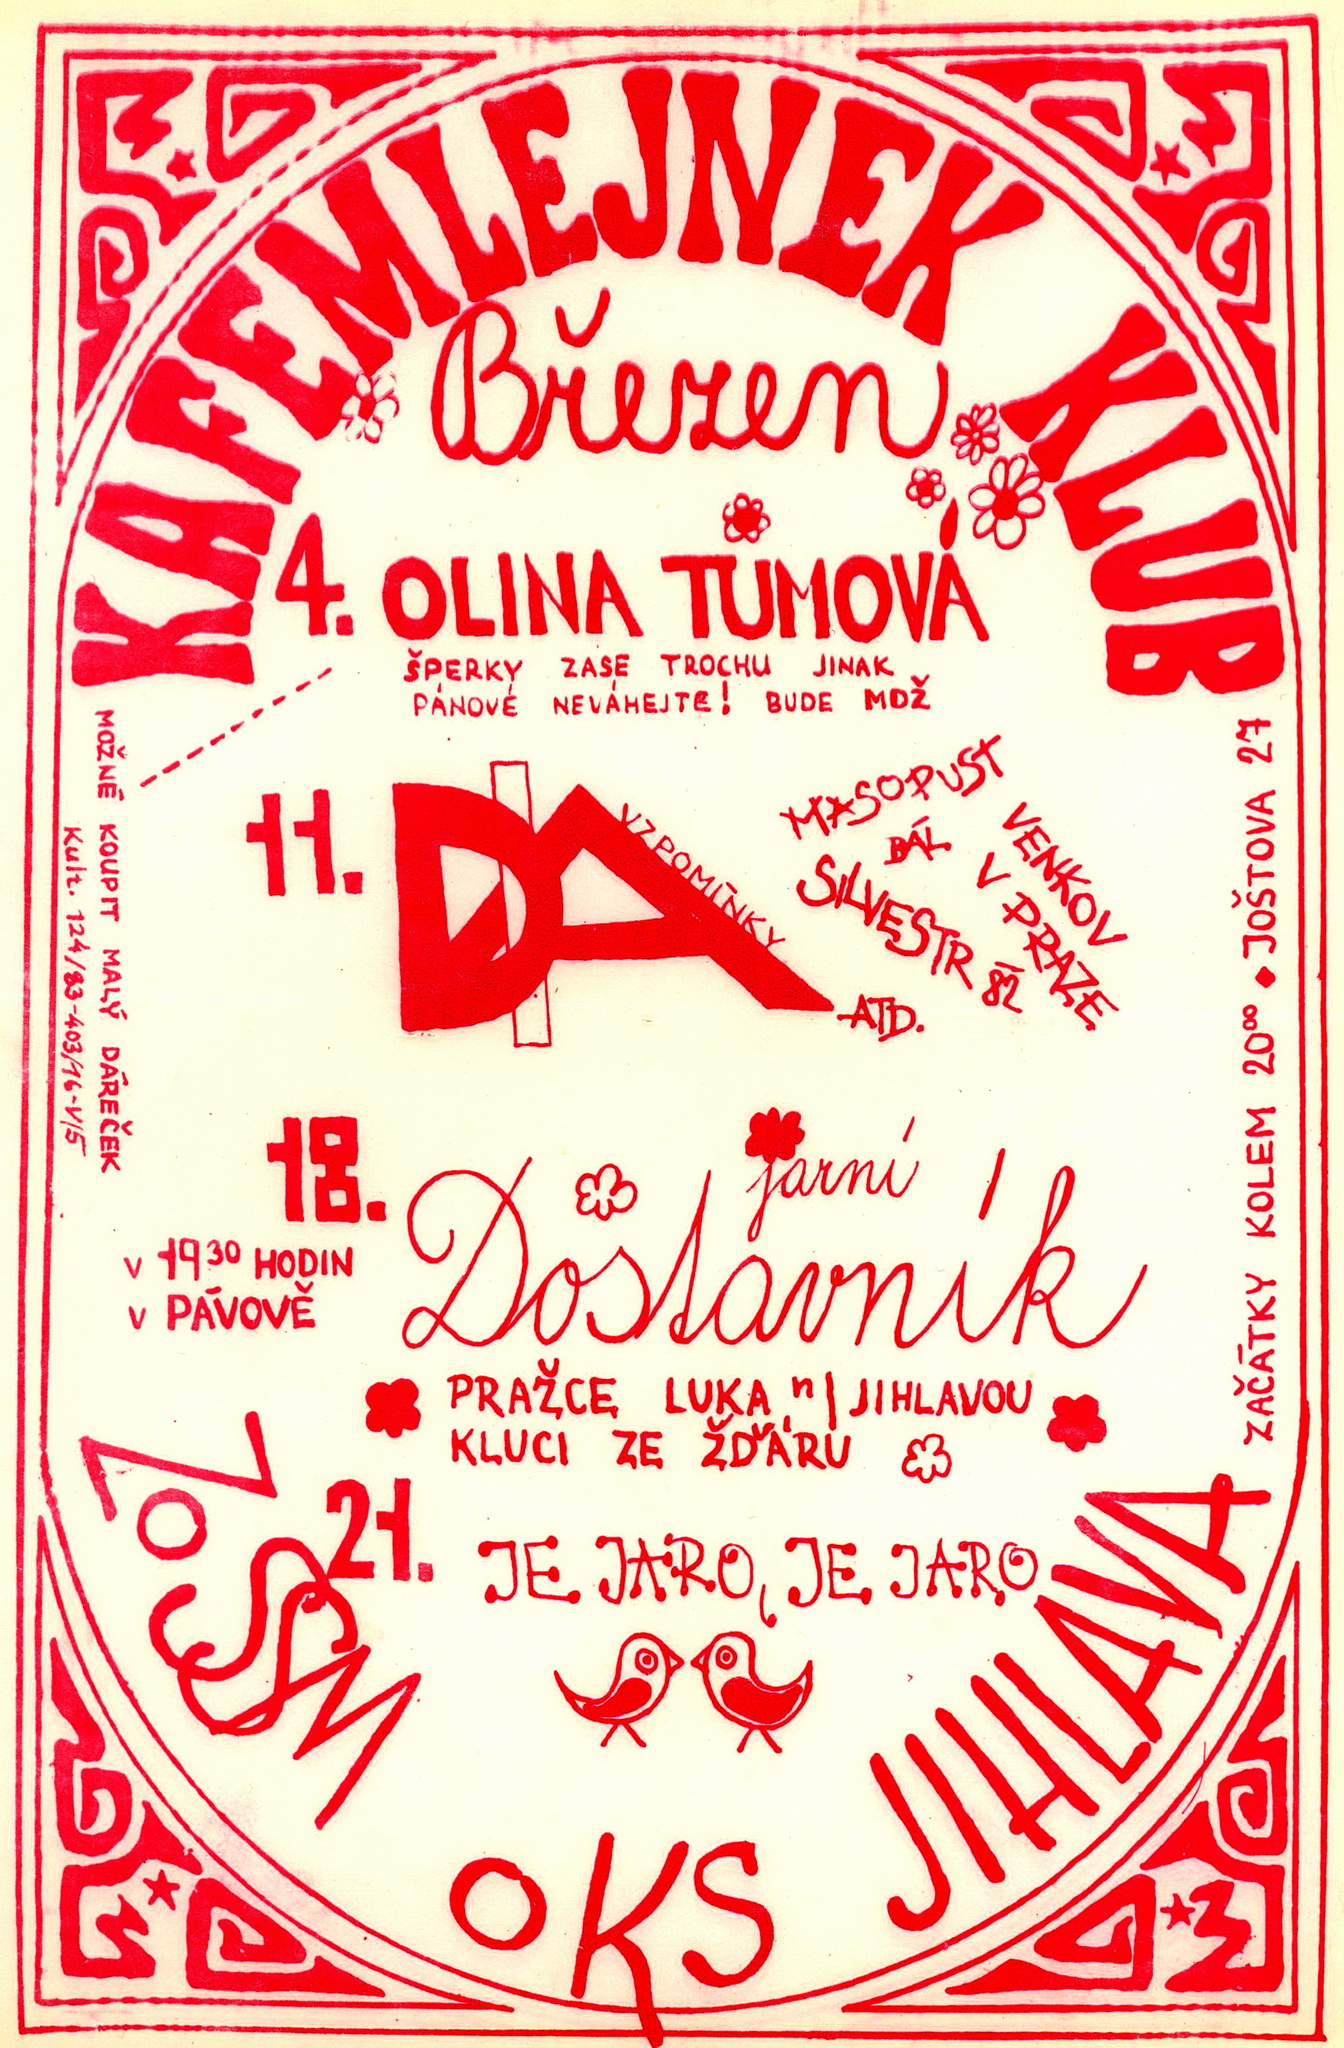 KAFEMLEJNEK KLUB
Březen
4. OLINA TŮMOVÁ
ŠPERKY ZASE TROCHU JINAK
PÁNOVÉ NEVÁHEJTE! BUDE MDŽ
MOŽNÉ KOUPIT MALÝ DÁREČEK
Kult. 124/83-403/16-V/5
11. DIA
VZPOMÍNKY
MASOPUST
BÁL
SILVESTR 82
VENKOV
V PRAZE
ATD.
18. jarní
Dostavník
v 19³⁰ HODIN
v PÁVOVĚ
PRAŽCE LUKA n/JIHLAVOU
KLUCI ZE ŽĎÁRU
21. JE JARO, JE JARO
ZAČÁTKY KOLEM 20⁰⁰ • JOŠTOVA 27
ZO SSM
OKS
JIHLAVA